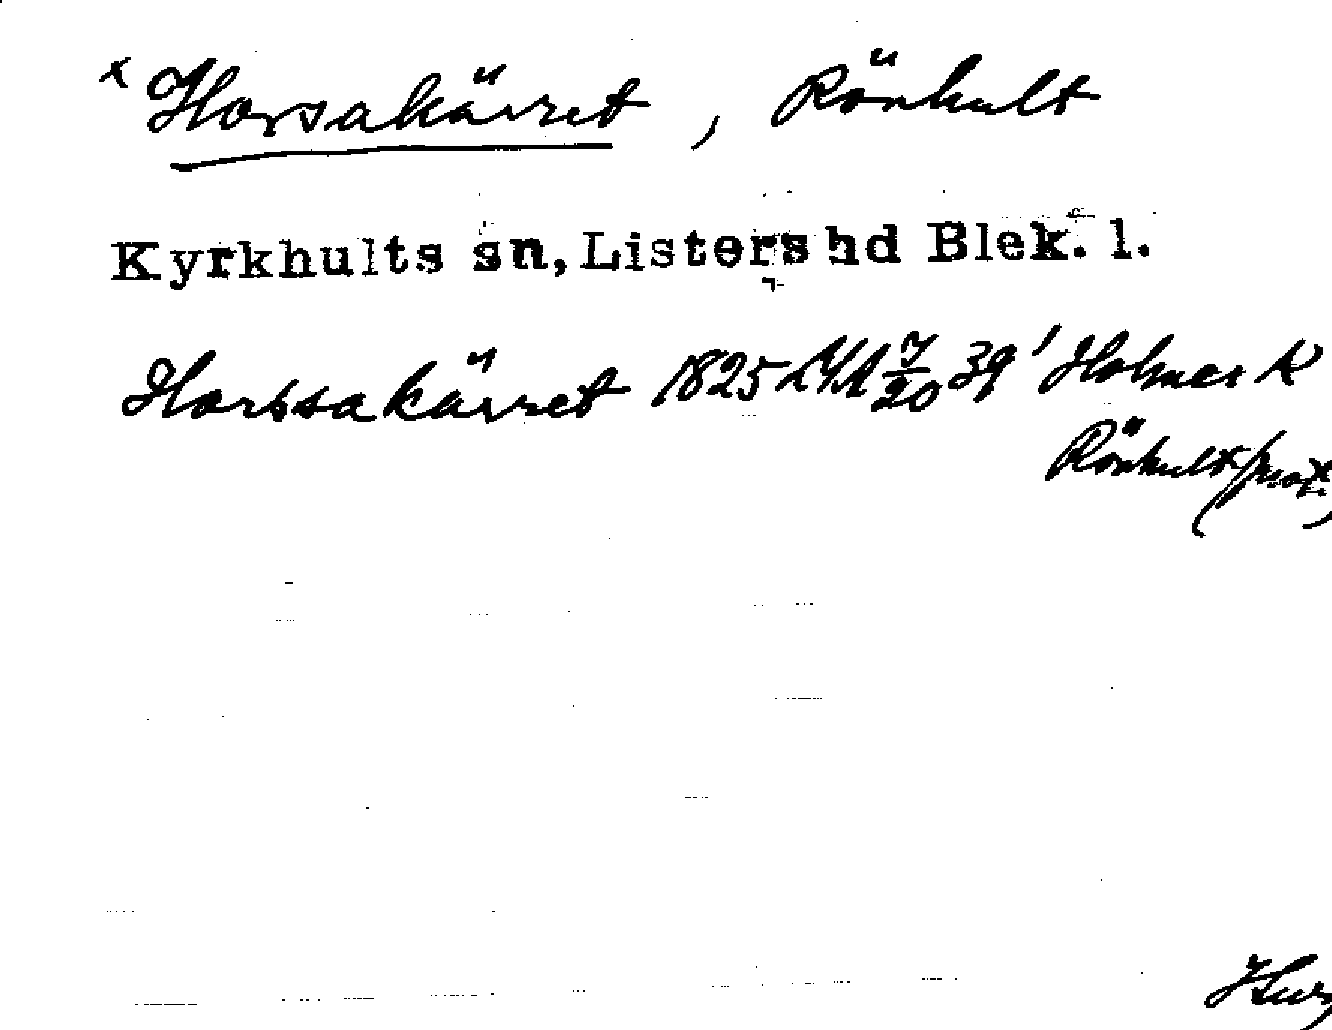 x Horsakärret, Rönhult
Kyrkhults sn, Listers hd Blek. l.
Horssakärret 1825 LMA 7/20 39' Holmer K
Rönhult